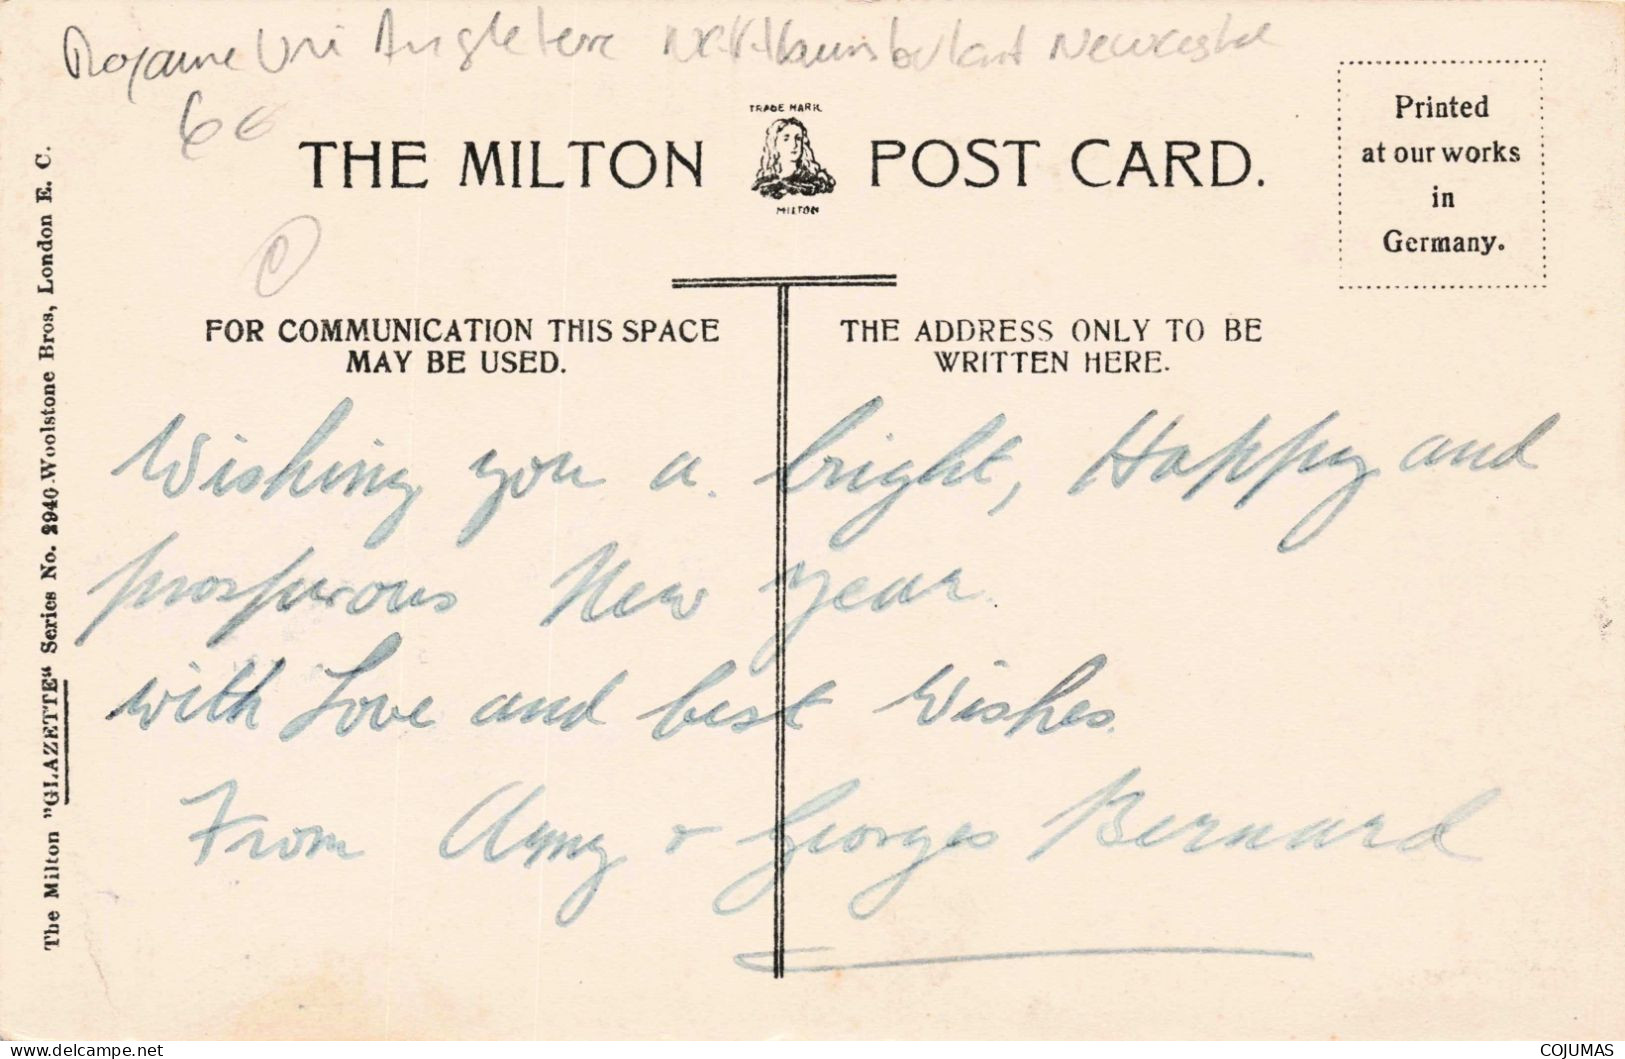 Royaume Uni Angleterre Northumberland Newcastle
6€
TRADE MARK
THE MILTON POST CARD.
MILTON
Printed
at our works
in
Germany.
FOR COMMUNICATION THIS SPACE
MAY BE USED.
THE ADDRESS ONLY TO BE
WRITTEN HERE.
Wishing you a bright, Happy and
prosperous New year.
with Love and best Wishes.
From Amy & Georges Bernard
The Milton "GLAZETTE" Series No. 2940 Woolstone Bros, London E. C.
delcampe.net
COJUMAS